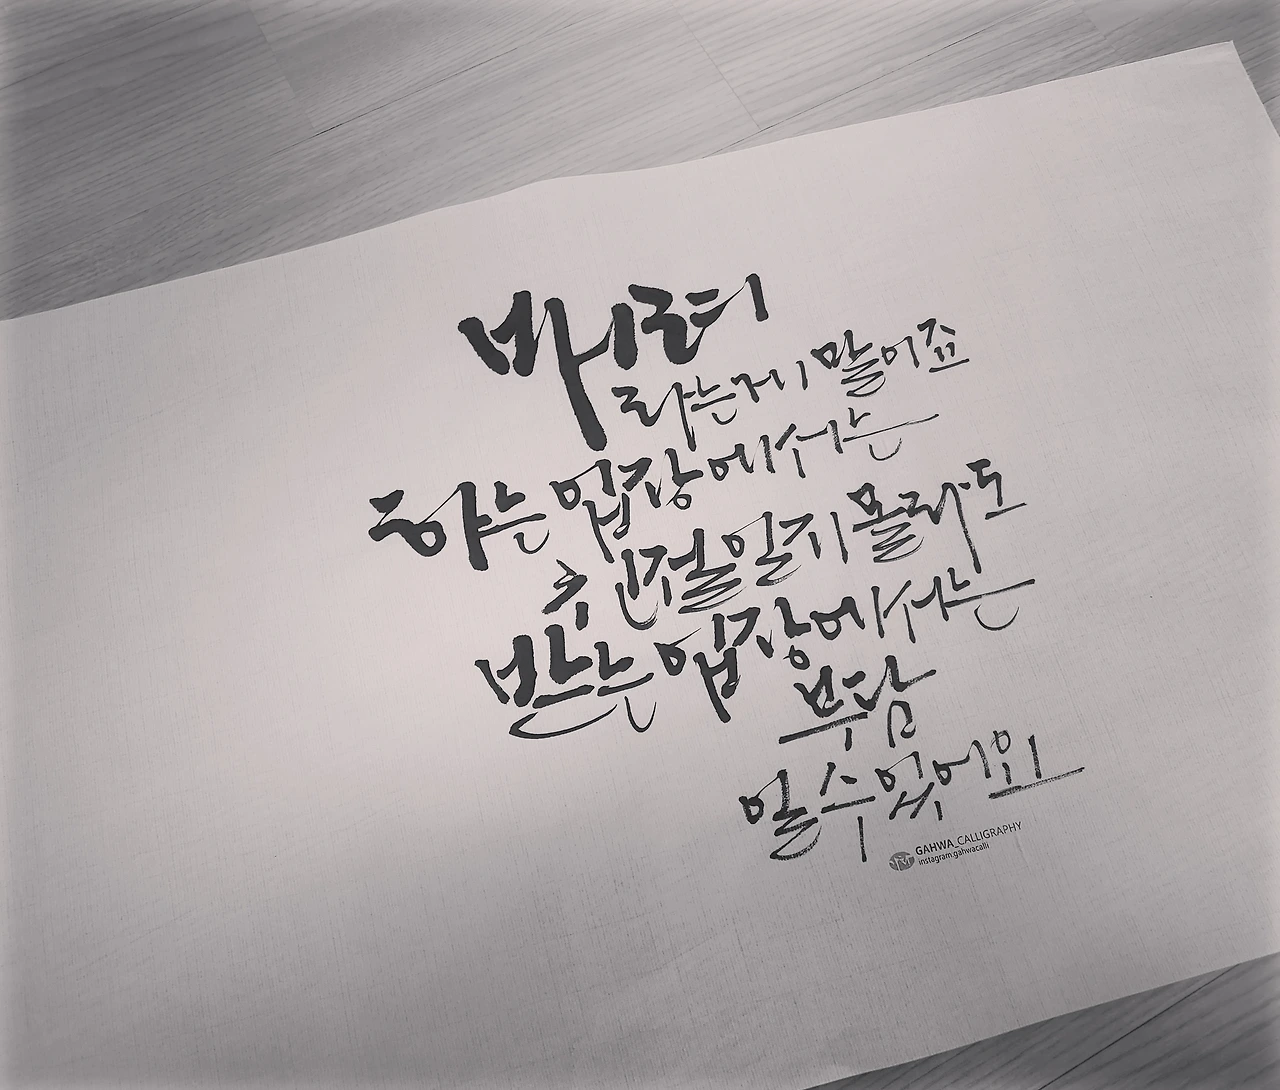 배려
라는게 말이죠
하는 입장에서는
친절일지 몰라도
받는 입장에서는
부담
일 수 있어요
GAHWA_CALLIGRAPHY
instagram:gahwacalli